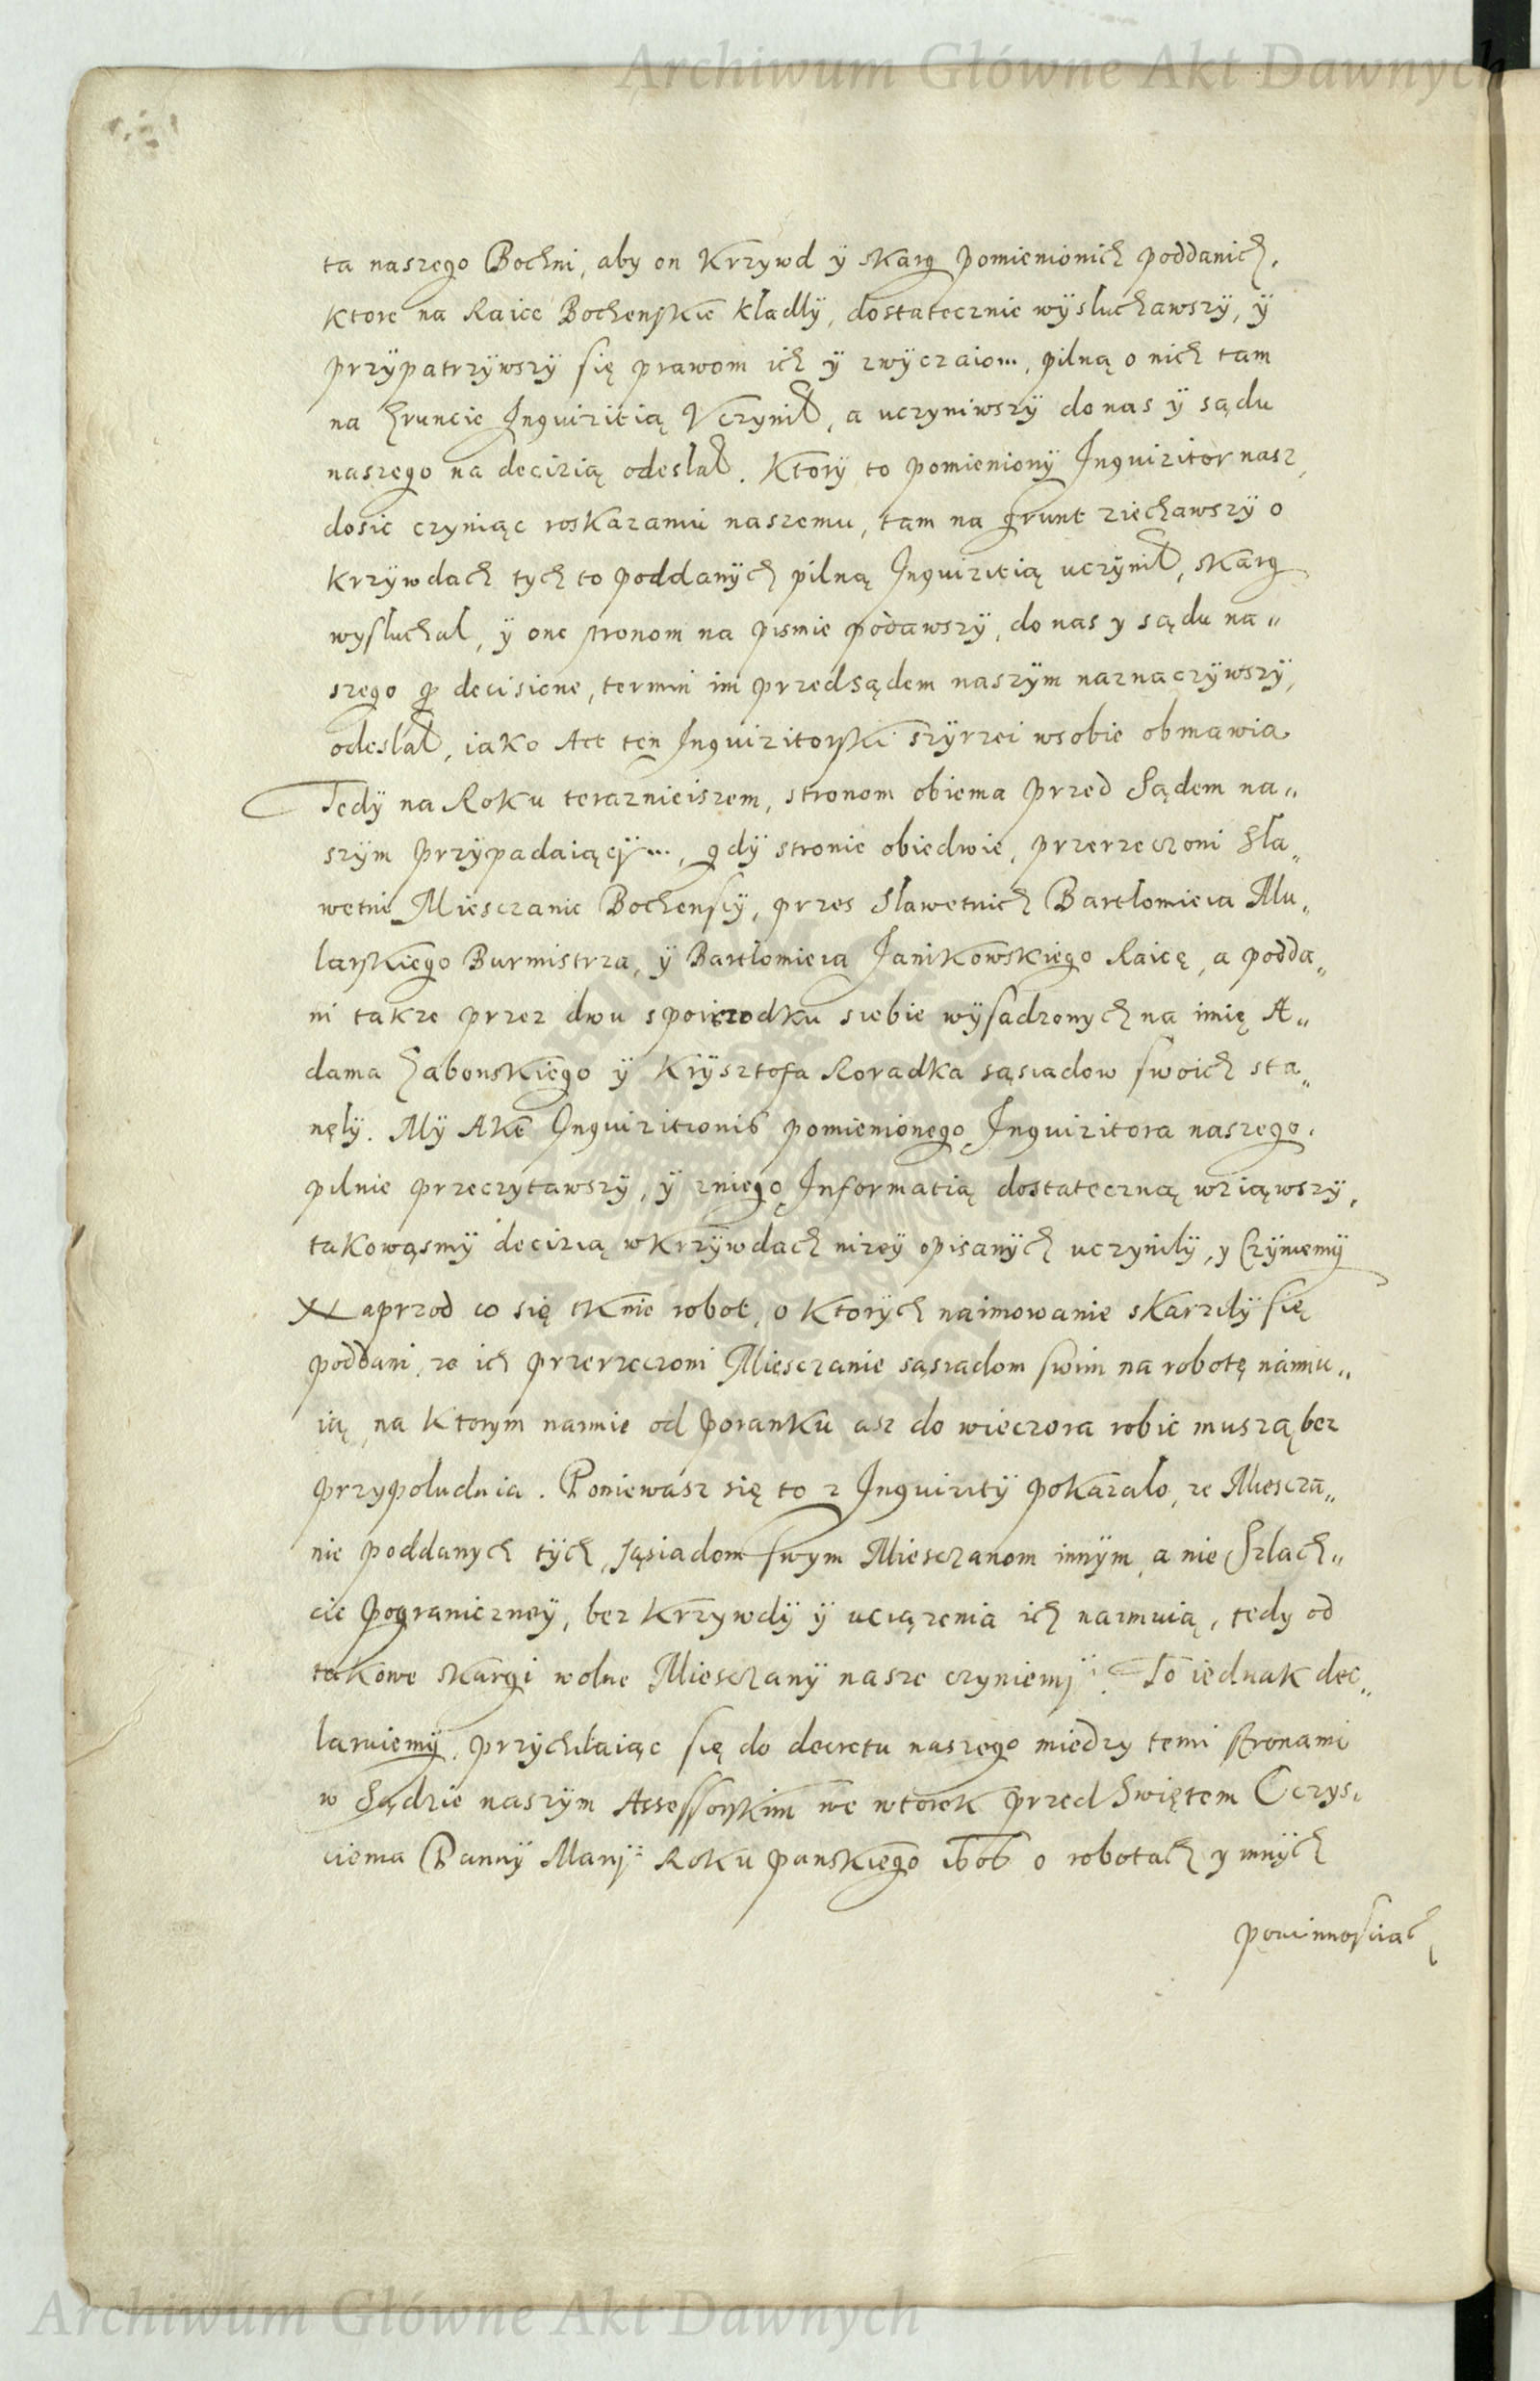 Archiwum Główne Akt Dawnych
ta naszego Bochni, aby on Krzywd ÿ skarg pomienionich poddanich,
Ktore na Raice Bochenskie kładłÿ, dostatecznie wÿsłuchawszÿ, ÿ
przÿpatrzÿwszÿ się prawom ich ÿ zwÿczaiom, pilną o nich tam
na gruncie Inquizitią Vczynił, a uczyniwszÿ do nas ÿ sądu
naszego na decizią odesłał. Ktorÿ to pomienionÿ Inquizitor nasz,
dosic czyniąc roskazaniu naszemu, tam na grunt ziechawszÿ o
Krzÿwdach tych to poddanÿch pilną Inquizitią uczÿnił, skarg
wysłuchał, ÿ one stronom na pismie podawszÿ, do nas y sądu na„
szego p decisione, termin im przed sądem naszÿm naznaczÿwszÿ,
odesłał, iako Act ten Inquizitorski szÿrzei wsobie obmawia
Tedÿ na Roku teraznieiszem, stronom obiema przed Sądem na„
szÿm przÿpadaiącÿm, gdÿ stronie obiedwie, przerzeczoni Sła„
wetni Miesczanie Bochenscÿ, przes Sławetnich Bartłomieia Mu„
larskiego Burmistrza, ÿ Bartłomieia Janikowskiego Raicę, a podda„
ni takze przez dwu spośrzodku siebie wÿsadzonych na imię A„
dama Zabonskiego ÿ Krÿsztofa Roradka sąsiadow swoich sta„
nęlÿ. Mÿ Akt Inquizitionis pomienionego Inquizitora naszego,
pilnie przeczytawszÿ, ÿ zniego Informatią dostateczną wziąwszÿ,
takowąsmÿ decizią w krzÿwdach nizeÿ opisanÿch uczynilÿ, y Czÿniemÿ
Naprzod co się tknie robot, o ktorÿch naimowanie skarzylÿ się
poddani, ze ich przerzeczoni Miesczanie sąsiadom swim na robotę naimu„
ią, na ktorym naimie od poranku asz do wieczora robic muszą bez
przypołudnia. Poniewasz się to z Inquizitÿ pokazało, ze Miescza„
nie poddanych tÿch, sąsiadom swym Miesczanom innÿm, a nie Szlach„
cie pograniczneÿ, bez krzywdÿ ÿ uciązenia ich naimuią, tedy od
takowe skargi wolne Miesczanÿ nasze czyniemÿ. To iednak dec„
laruiemÿ, przychÿlaiąc się do decretu naszego miedzy temi stronami
w Sądzie naszÿm Assessorskim we wtorek przed Swiętem Oczys„
cienia Pannÿ Mariÿ Roku panskiego 1606 o robotach y innÿch
powinnosciach
Archiwum Główne Akt Dawnych